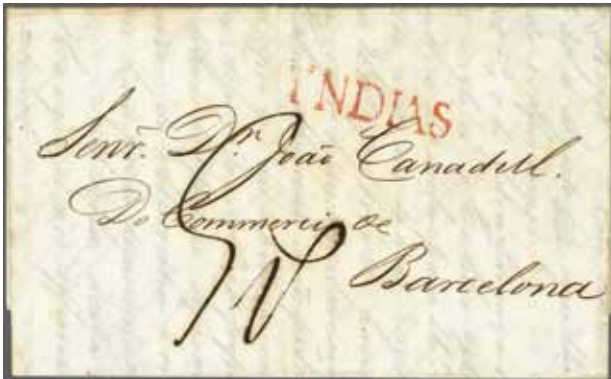 YNDIAS
Senr. Dn. João Canadell.
Do Commercio de
Barcelona